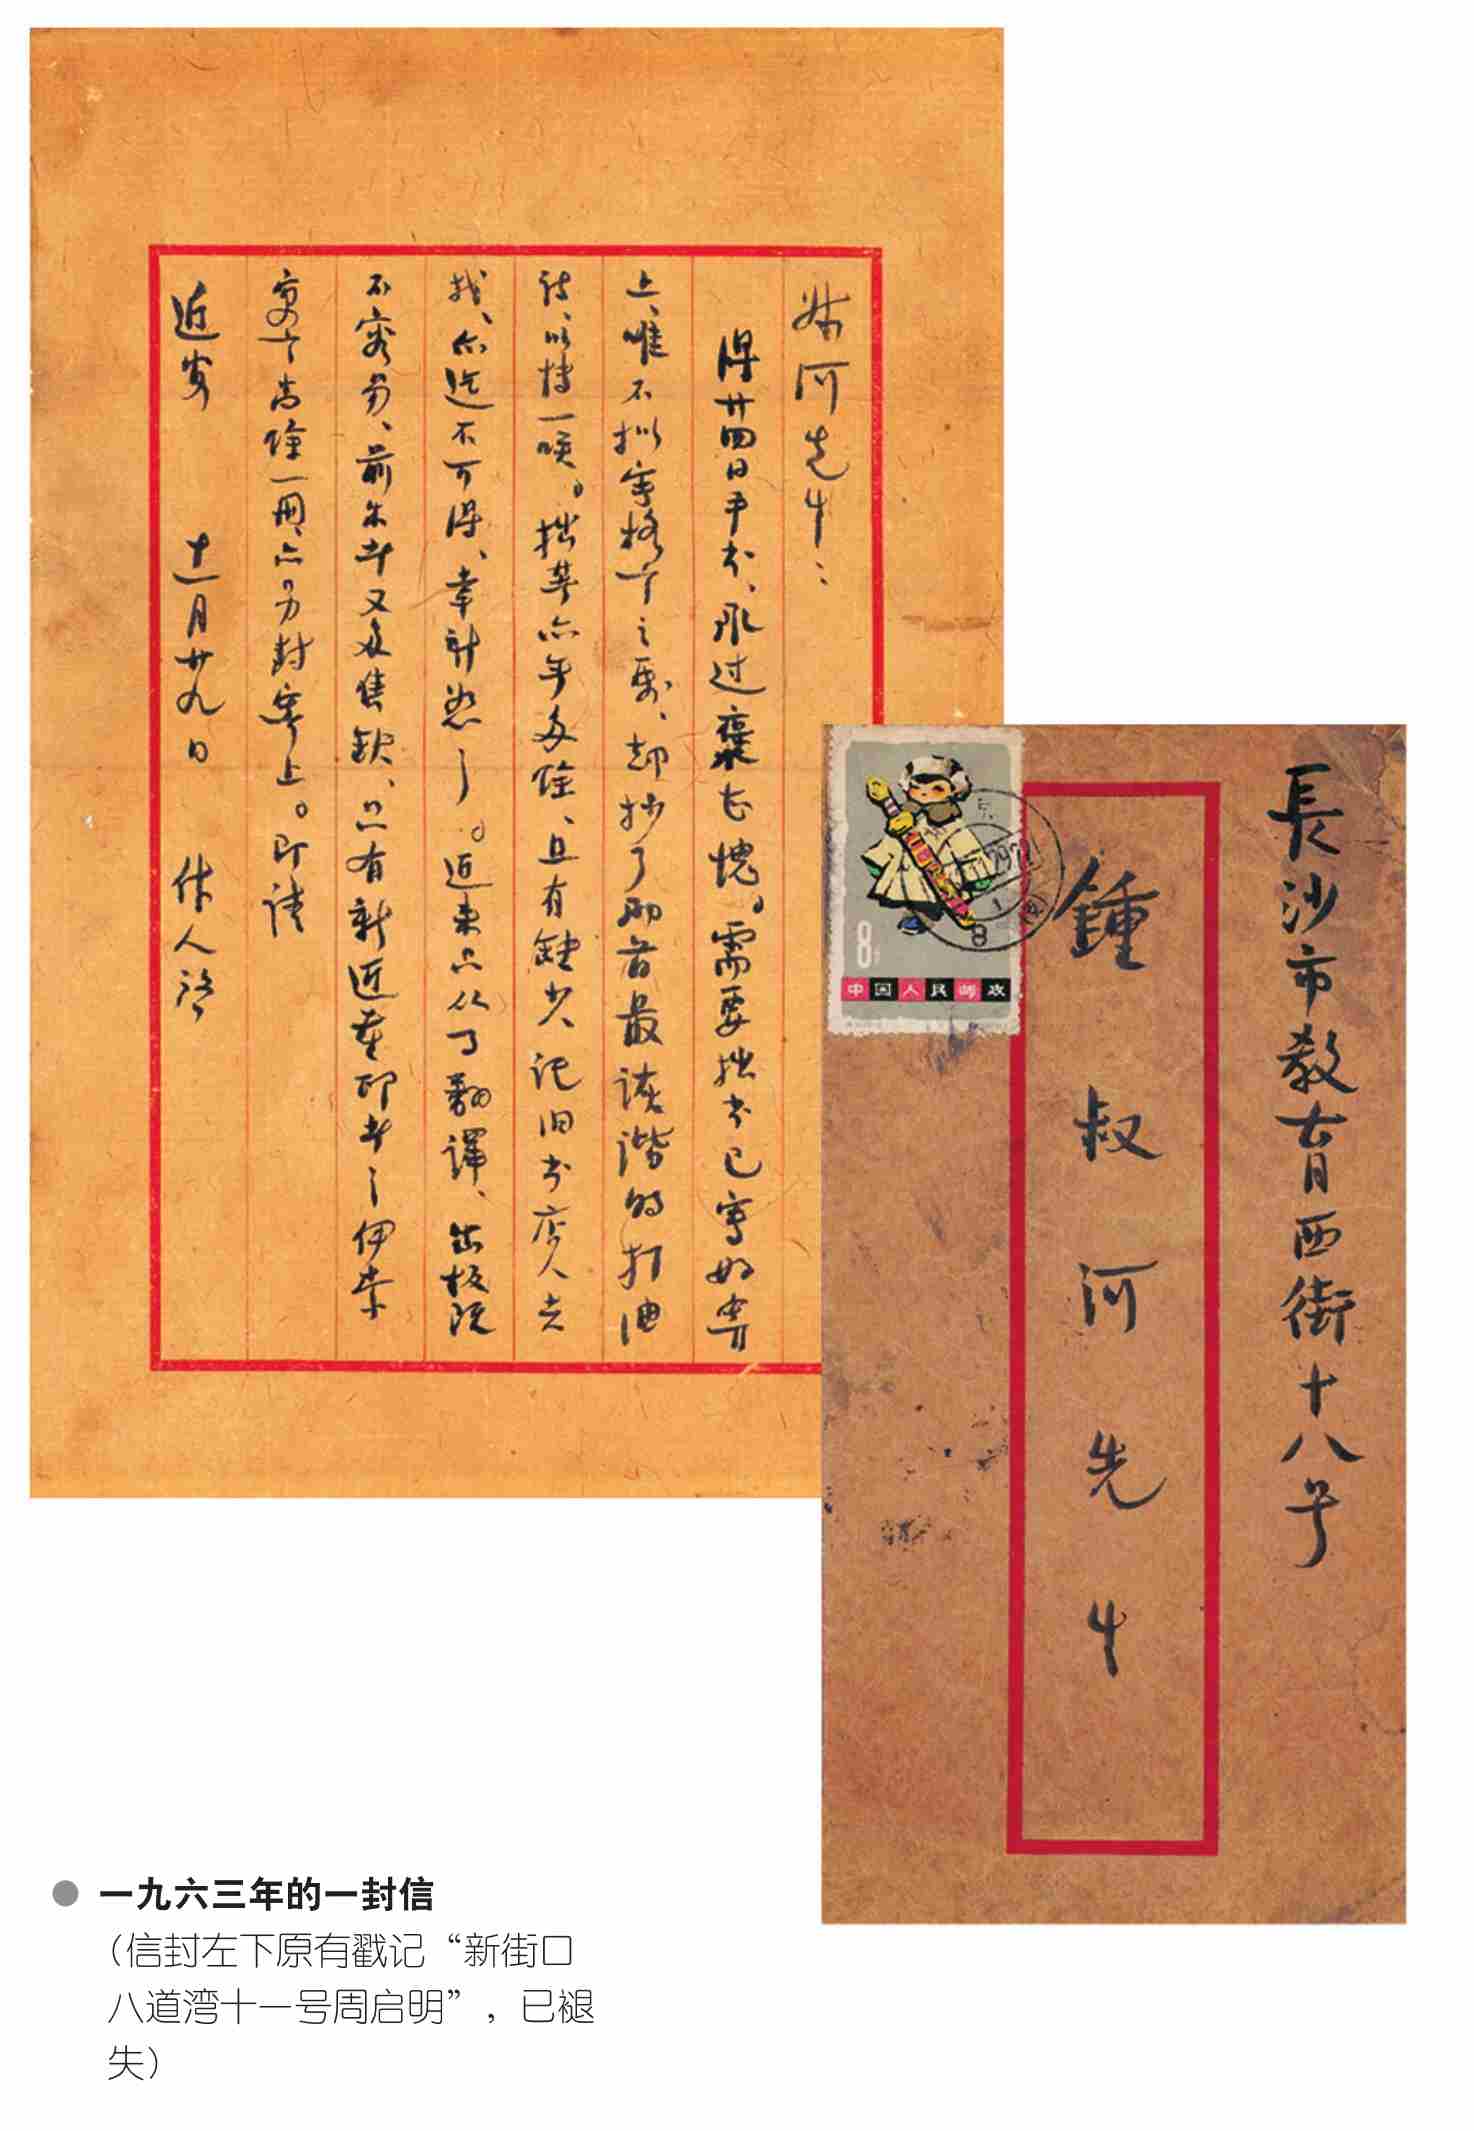 叔河先生：
得廿四日手书、承过褒甚愧。需要拙书已写好寄
上、唯不拟写格言之类、却抄了两首最诙谐的打油
诗、以博一笑。拙著亦无多馀、且有缺少、托旧书店人去
找、亦迄不可得、幸谅恕之。近来只从事翻譯、出板既
不容易、前出书又多售缺、只有新近重印本之伊索
寓言尚馀一册、亦另封寄上。即请
近安 十一月廿九日 作人启
長沙市教育西街十八号
鍾叔河先生
8分
中国人民邮政
一九六三年的一封信
（信封左下原有戳记“新街口
八道湾十一号周启明”，已褪
失）